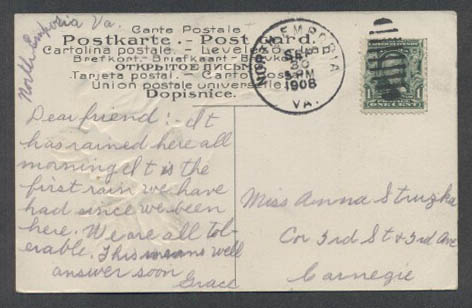 North Emporia Va.
Carte Postale
Postkarte - Post Card.
Cartolina postale. - Levelező-Lap.
Brefkort.- Briefkaart - Brevkort.
ОТКРЫТОЕ ПИСЬМО
Tarjeta postal. - Carto postal
Union postale universelle
Dopisnice.
NORTH EMPORIA
SEP
30
5 PM
1908
VA.
1 1
ONE CENT
Dear friend :- It
has rained here all
morning It is the
first rain we have
had since we been
here. We are all tol-
erable. This means well
answer soon
Grace
Miss Anna Struzka
Cor 3rd St & 3rd Ave
Carnegie